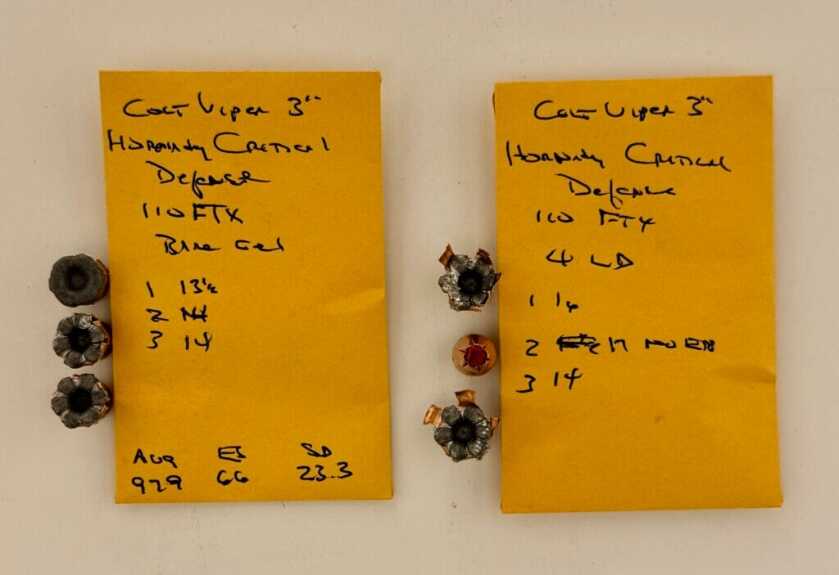 Colt Viper 3"
Hornady Critical
Defense
110 FTX
Bare Gel
1 13½
2 14
3 14
Avg ES SD
929 66 23.3
Colt Viper 3"
Hornady Critical
Defense
110 FTX
4 LD
1 14
2 17 no exp
3 14